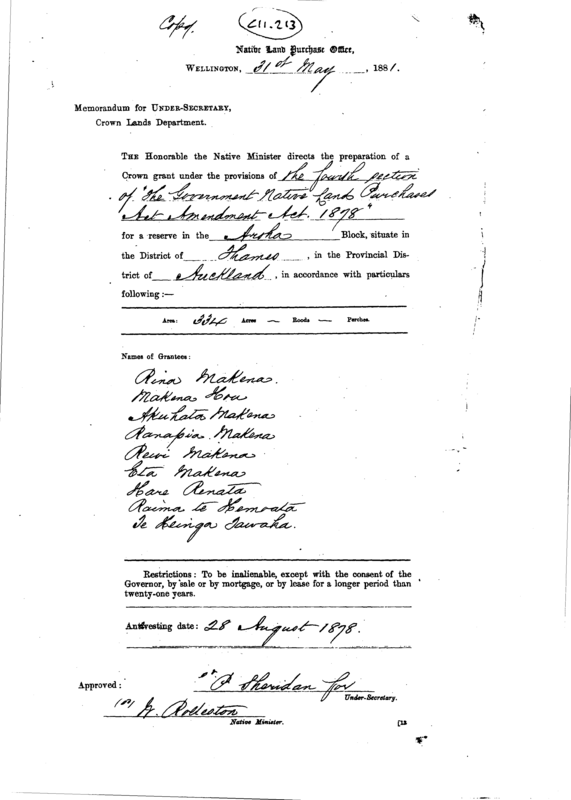 Copy.
C11.213
Native Land Purchase Office,
WELLINGTON, 31st May, 1881.
Memorandum for UNDER-SECRETARY,
Crown Lands Department.
THE Honorable the Native Minister directs the preparation of a
Crown grant under the provisions of the fourth section
of "The Government Native Land Purchases
Act Amendment Act. 1878"
for a reserve in the Aroha Block, situate in
the District of Thames, in the Provincial Dis-
trict of Auckland, in accordance with particulars
following:—
Area: 334 Acres — Roods — Perches.
Names of Grantees:
Rina Makena.
Makena Hou
Akuhata Makena
Ranapia Makena
Rewi Makena
Eta Makena
Hare Renata
Raima te
Te Keinga Tawaha.
Restrictions: To be inalienable, except with the consent of the
Governor, by sale or by mortgage, or by lease for a longer period than
twenty-one years.
Antevesting date: 28 August 1878.
P Sheridan for
Approved:
Under-Secretary.
W. Rolleston
Native Minister.